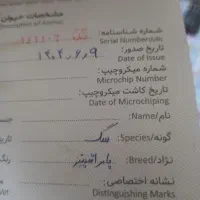 مشخصات حیوان
شماره شناسنامه:
Serial Number(UI):
تاریخ صدور: ۱۴۰۲،۶،۹
Date of Issue
شماره میکروچیپ:
Microchip Number
تاریخ کاشت میکروچیپ:
Date of Microchiping
نام/Name:
گونه/Species: سگ
نژاد/Breed: پامرانین
رنگ
نشانه اختصاصی:
Distinguishing Marks